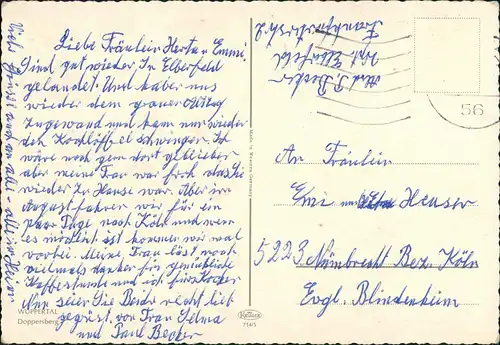 Liebe Fräulein Herta u Emmi.
Sind gut wieder. In Elberfeld
gelandet. Und haben uns
wieder dem grauen Alltag
zugewand und kann nun wieder
den Kochlöffel schwingen. Ich
wäre noch gern dort geblieben
aber meine Frau war froh das sie
wieder zu Hause war. Aber im
August fahren wir für ein
paar Tage nach Köln und wenn
es möglich ist kommen wir mal
vorbei. Meine Frau lässt noch
vielmals danken für gemütliche
Kaffestunde und ich für
Nun seien Sie Beide recht lieb
gegrüst von Frau Selma
und Paul Becker
Viele Grüsse auch an alle - alle im Heim
WUPPERTAL
Doppersberg
Made in Western Germany
Krüger
714/5
Abs. P. Becker
Wpt. Elberfeld
56
An Fräulein
Emi und Heuser
5223 Nümbrecht Bez. Köln
Evgl. Blindenheim